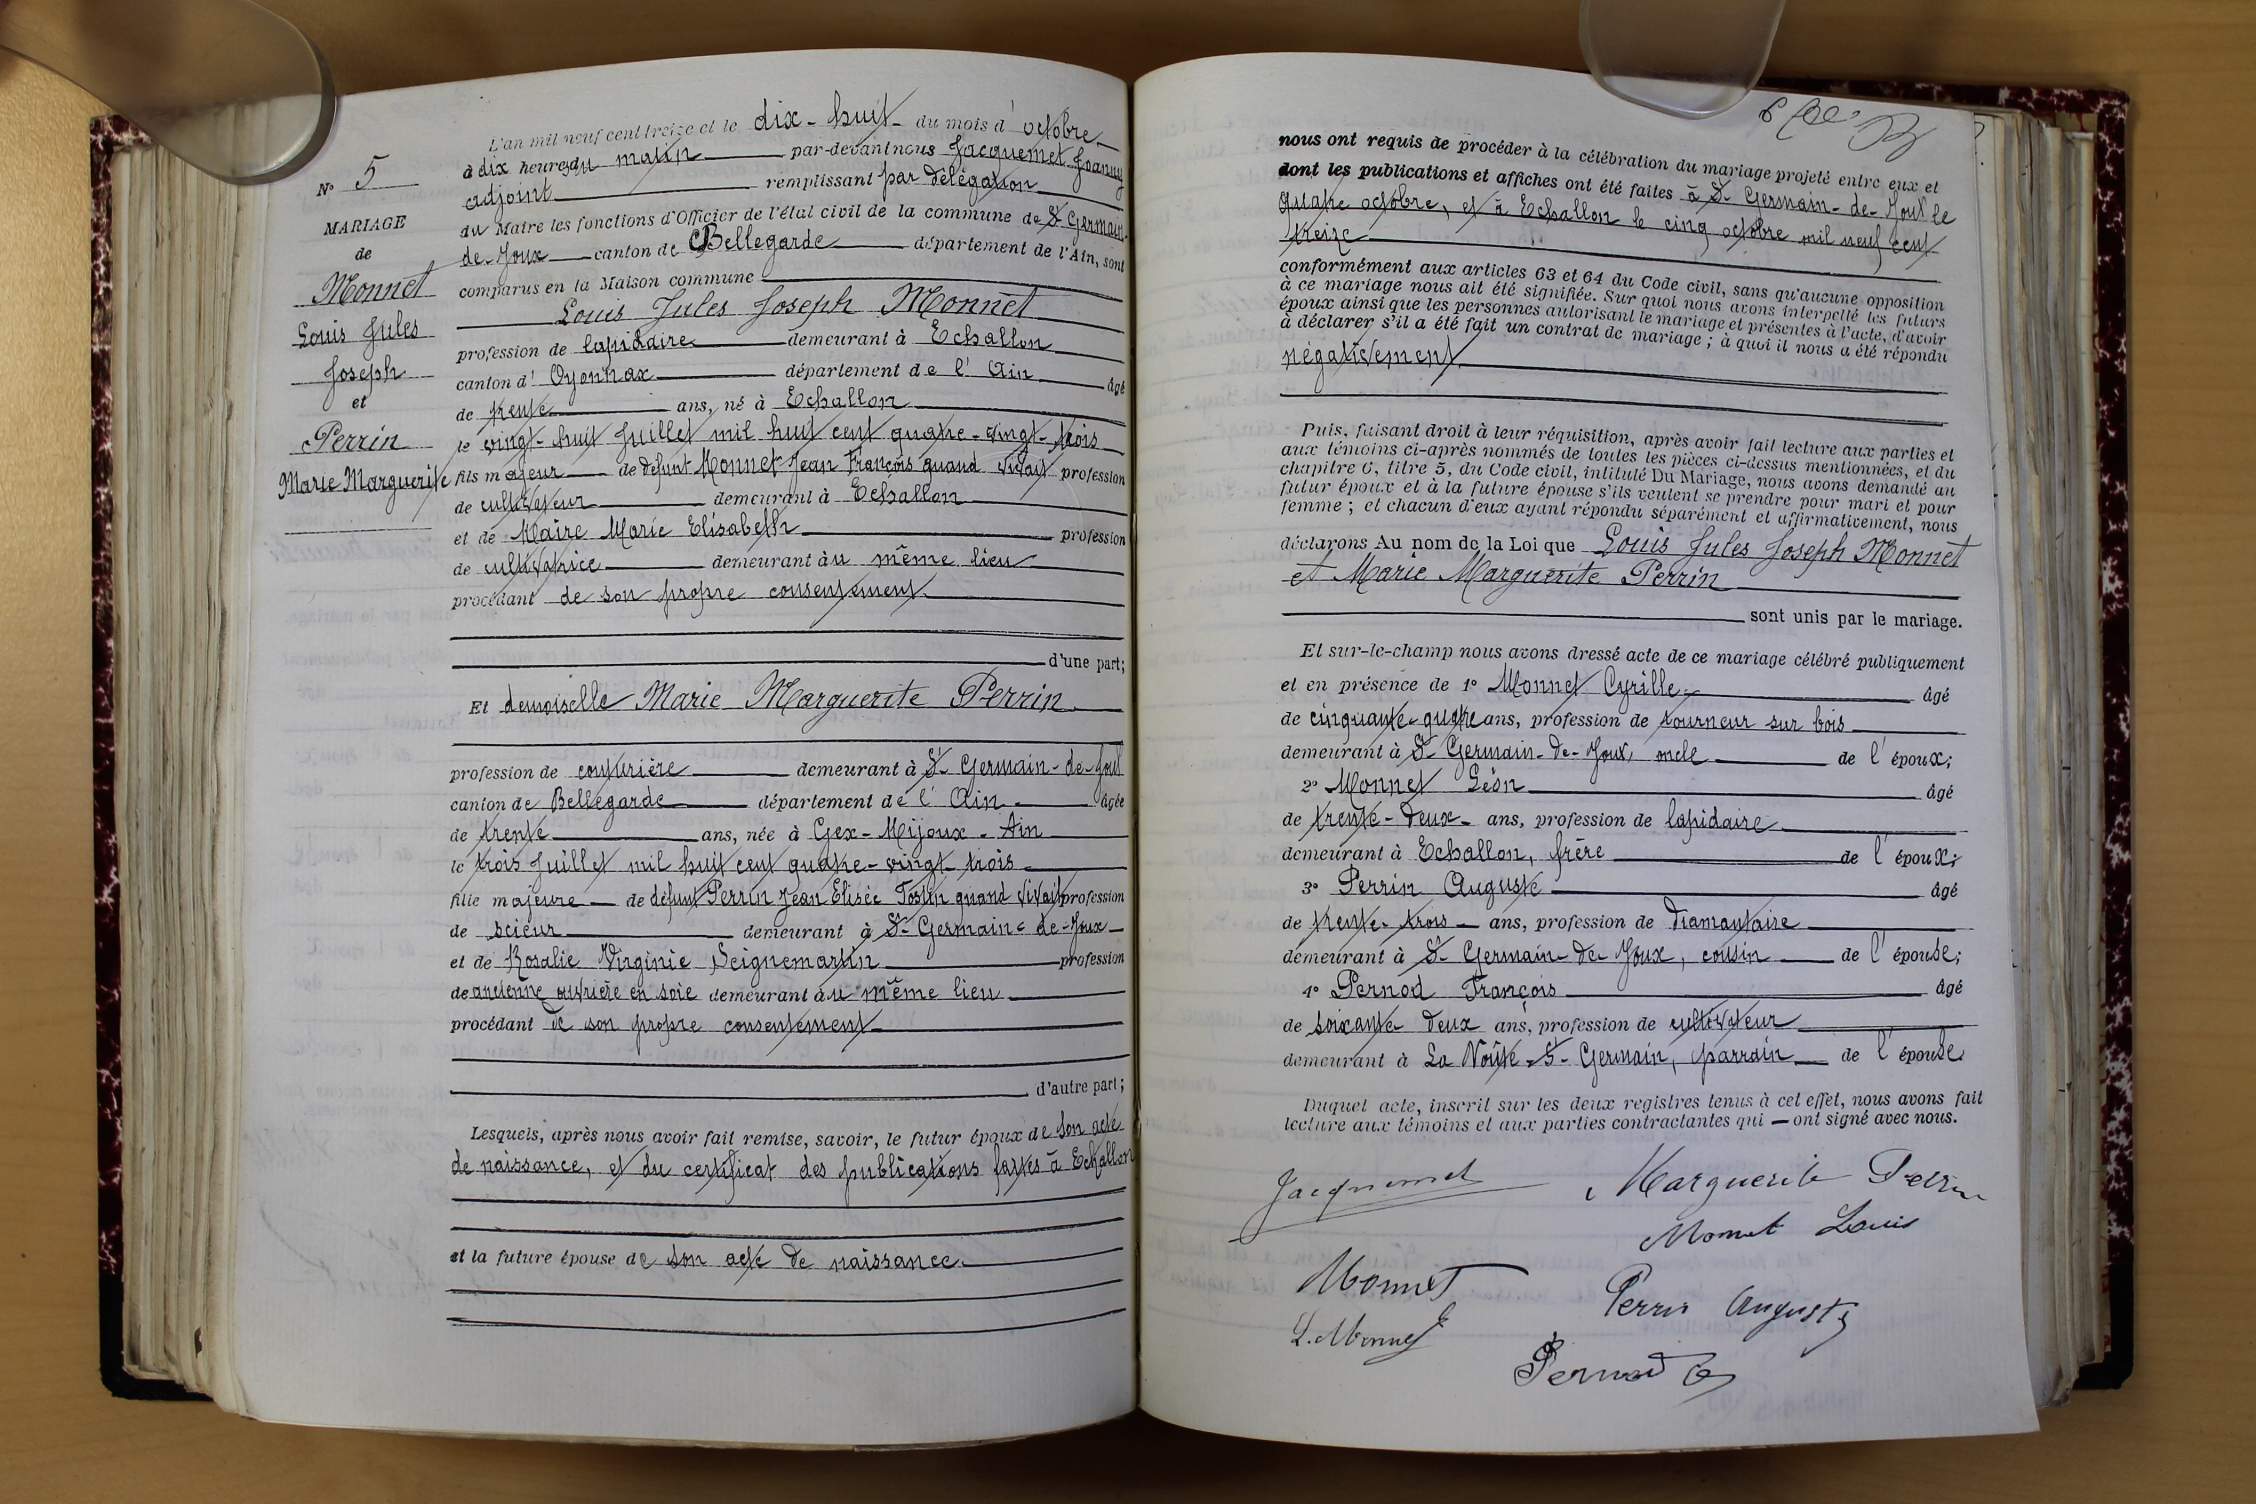 N° 5
MARIAGE
de
Monnet
Louis Jules
Joseph
et
Perrin
Marie Marguerite
L'an mil neuf cent treize et le dix-huit du mois d'octobre
à dix heures du matin par-devant nous Jacquemet Joanny
adjoint remplissant par délégation
du Maire les fonctions d'Officier de l'état civil de la commune de St Germain-
de-Joux canton de Bellegarde département de l'Ain, sont
comparus en la Maison commune
Louis Jules Joseph Monnet
profession de lapidaire demeurant à Echallon
canton d'Oyonnax département de l'Ain âgé
de trente ans, né à Echallon
le vingt-huit Juillet mil huit cent quatre-vingt-trois
fils majeur de défunt Monnet Jean François quand vivait profession
de cultivateur demeurant à Echallon
et de Maire Marie Elisabeth profession
de cultivatrice demeurant au même lieu
procédant de son propre consentement
d'une part;
Et demoiselle Marie Marguerite Perrin
profession de couturière demeurant à St Germain-de-Joux
canton de Bellegarde département de l'Ain âgée
de trente ans, née à Gex-Mijoux-Ain
le trois Juillet mil huit cent quatre-vingt-trois
fille majeure de défunt Perrin Jean Elisée quand vivait profession
de scieur demeurant à St Germain-de-Joux
et de Rosalie Virginie Seignemartin profession
de ancienne ouvrière en soie demeurant au même lieu
procédant de son propre consentement
d'autre part;
Lesquels, après nous avoir fait remise, savoir, le futur époux de son acte
de naissance, et du certificat des publications faites à Echallon
et la future épouse de son acte de naissance.
nous ont requis de procéder à la célébration du mariage projeté entre eux et
dont les publications et affiches ont été faites à St Germain-de-Joux le
quatre octobre, et à Echallon le cinq octobre mil neuf cent
treize
conformément aux articles 63 et 64 du Code civil, sans qu'aucune opposition
à ce mariage nous ait été signifiée. Sur quoi nous avons interpellé les futurs
époux ainsi que les personnes autorisant le mariage et présentes à l'acte, d'avoir
à déclarer s'il a été fait un contrat de mariage; à quoi il nous a été répondu
négativement.
Puis, faisant droit à leur réquisition, après avoir fait lecture aux parties et
aux témoins ci-après nommés de toutes les pièces ci-dessus mentionnées, et du
chapitre 6, titre 5, du Code civil, intitulé Du Mariage, nous avons demandé au
futur époux et à la future épouse s'ils veulent se prendre pour mari et pour
femme; et chacun d'eux ayant répondu séparément et affirmativement, nous
déclarons Au nom de la Loi que Louis Jules Joseph Monnet
et Marie Marguerite Perrin
sont unis par le mariage.
Et sur-le-champ nous avons dressé acte de ce mariage célébré publiquement
et en présence de 1° Monnet Cyrille âgé
de cinquante-quatre ans, profession de tourneur sur bois
demeurant à St Germain-de-Joux, oncle de l'époux;
2° Monnet Léon âgé
de trente-deux ans, profession de lapidaire
demeurant à Echallon, frère de l'époux;
3° Perrin Auguste âgé
de trente-trois ans, profession de diamantaire
demeurant à St Germain-de-Joux, cousin de l'épouse;
4° Pernod François âgé
de soixante deux ans, profession de cultivateur
demeurant à La Voûte-St-Germain, parrain de l'épouse
Duquel acte, inscrit sur les deux registres tenus à cet effet, nous avons fait
lecture aux témoins et aux parties contractantes qui ont signé avec nous.
Jacquemet
Marguerite Perrin
Monnet Louis
Monnet
Perrin Auguste
L. Monnet
Pernod